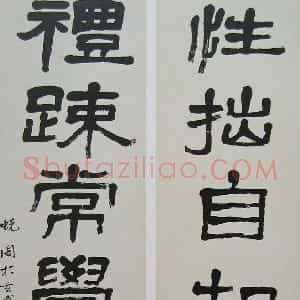 性拙自
禮疎常學
Shufaziliao.COM